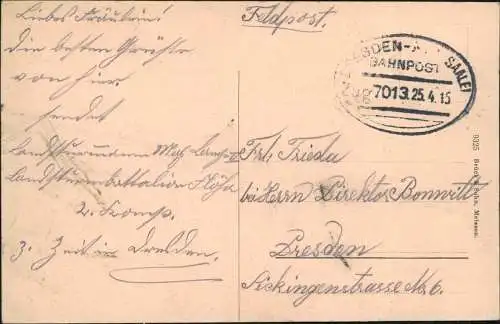 Liebes Fräulein!
Die besten Grüße
von hier
sendet
Landsturmmann Max
Landsturmbattalion Flöha
2. Komp.
z. Zeit in Dresden.
Feldpost.
DRESDEN- SAALE)
BAHNPOST
7013 25.4.15
Frl. Frieda
bei Herrn Direktor Bonwitt
Dresden
Sickingenstrasse No 6.
9325 Brück & Sohn, Meissen.